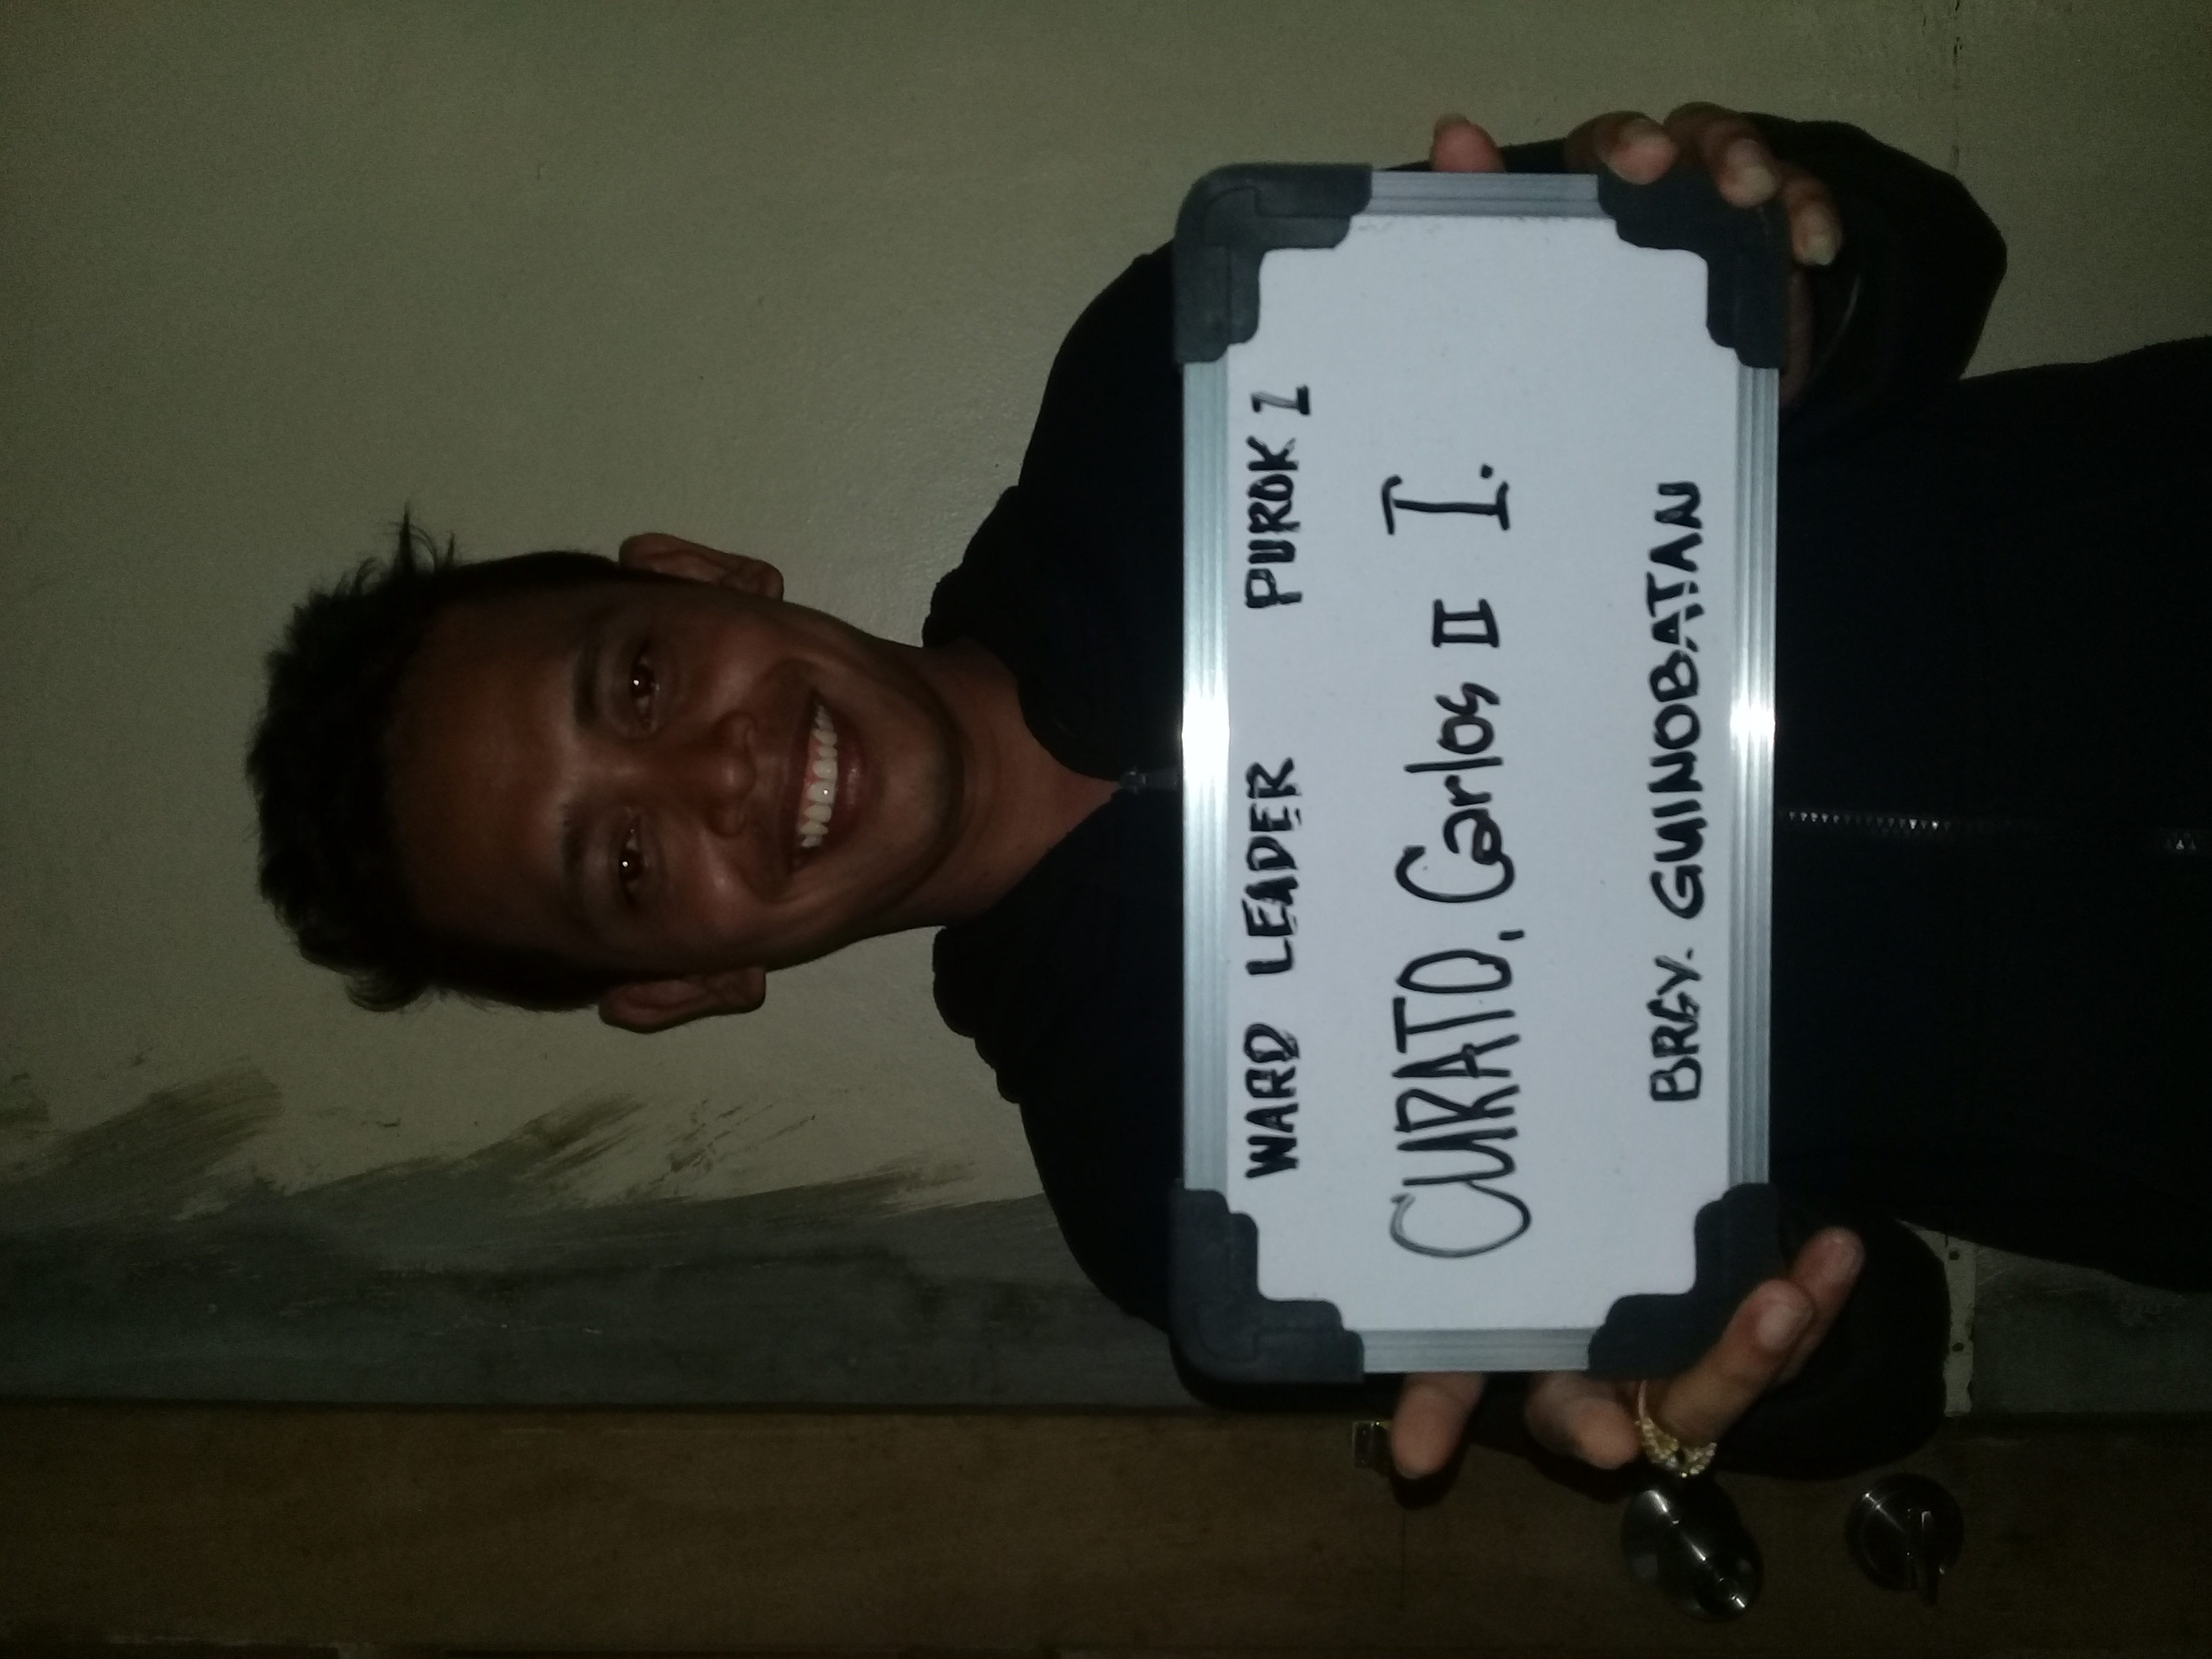 WARD LEADER PUROK 1
CURATO, Carlos II I.
BRGY. GUINOBATAN